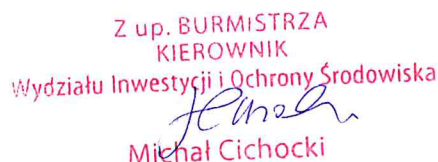 Z up. BURMISTRZA
KIEROWNIK
Wydziału Inwestycji i Ochrony Środowiska
Michał Cichocki